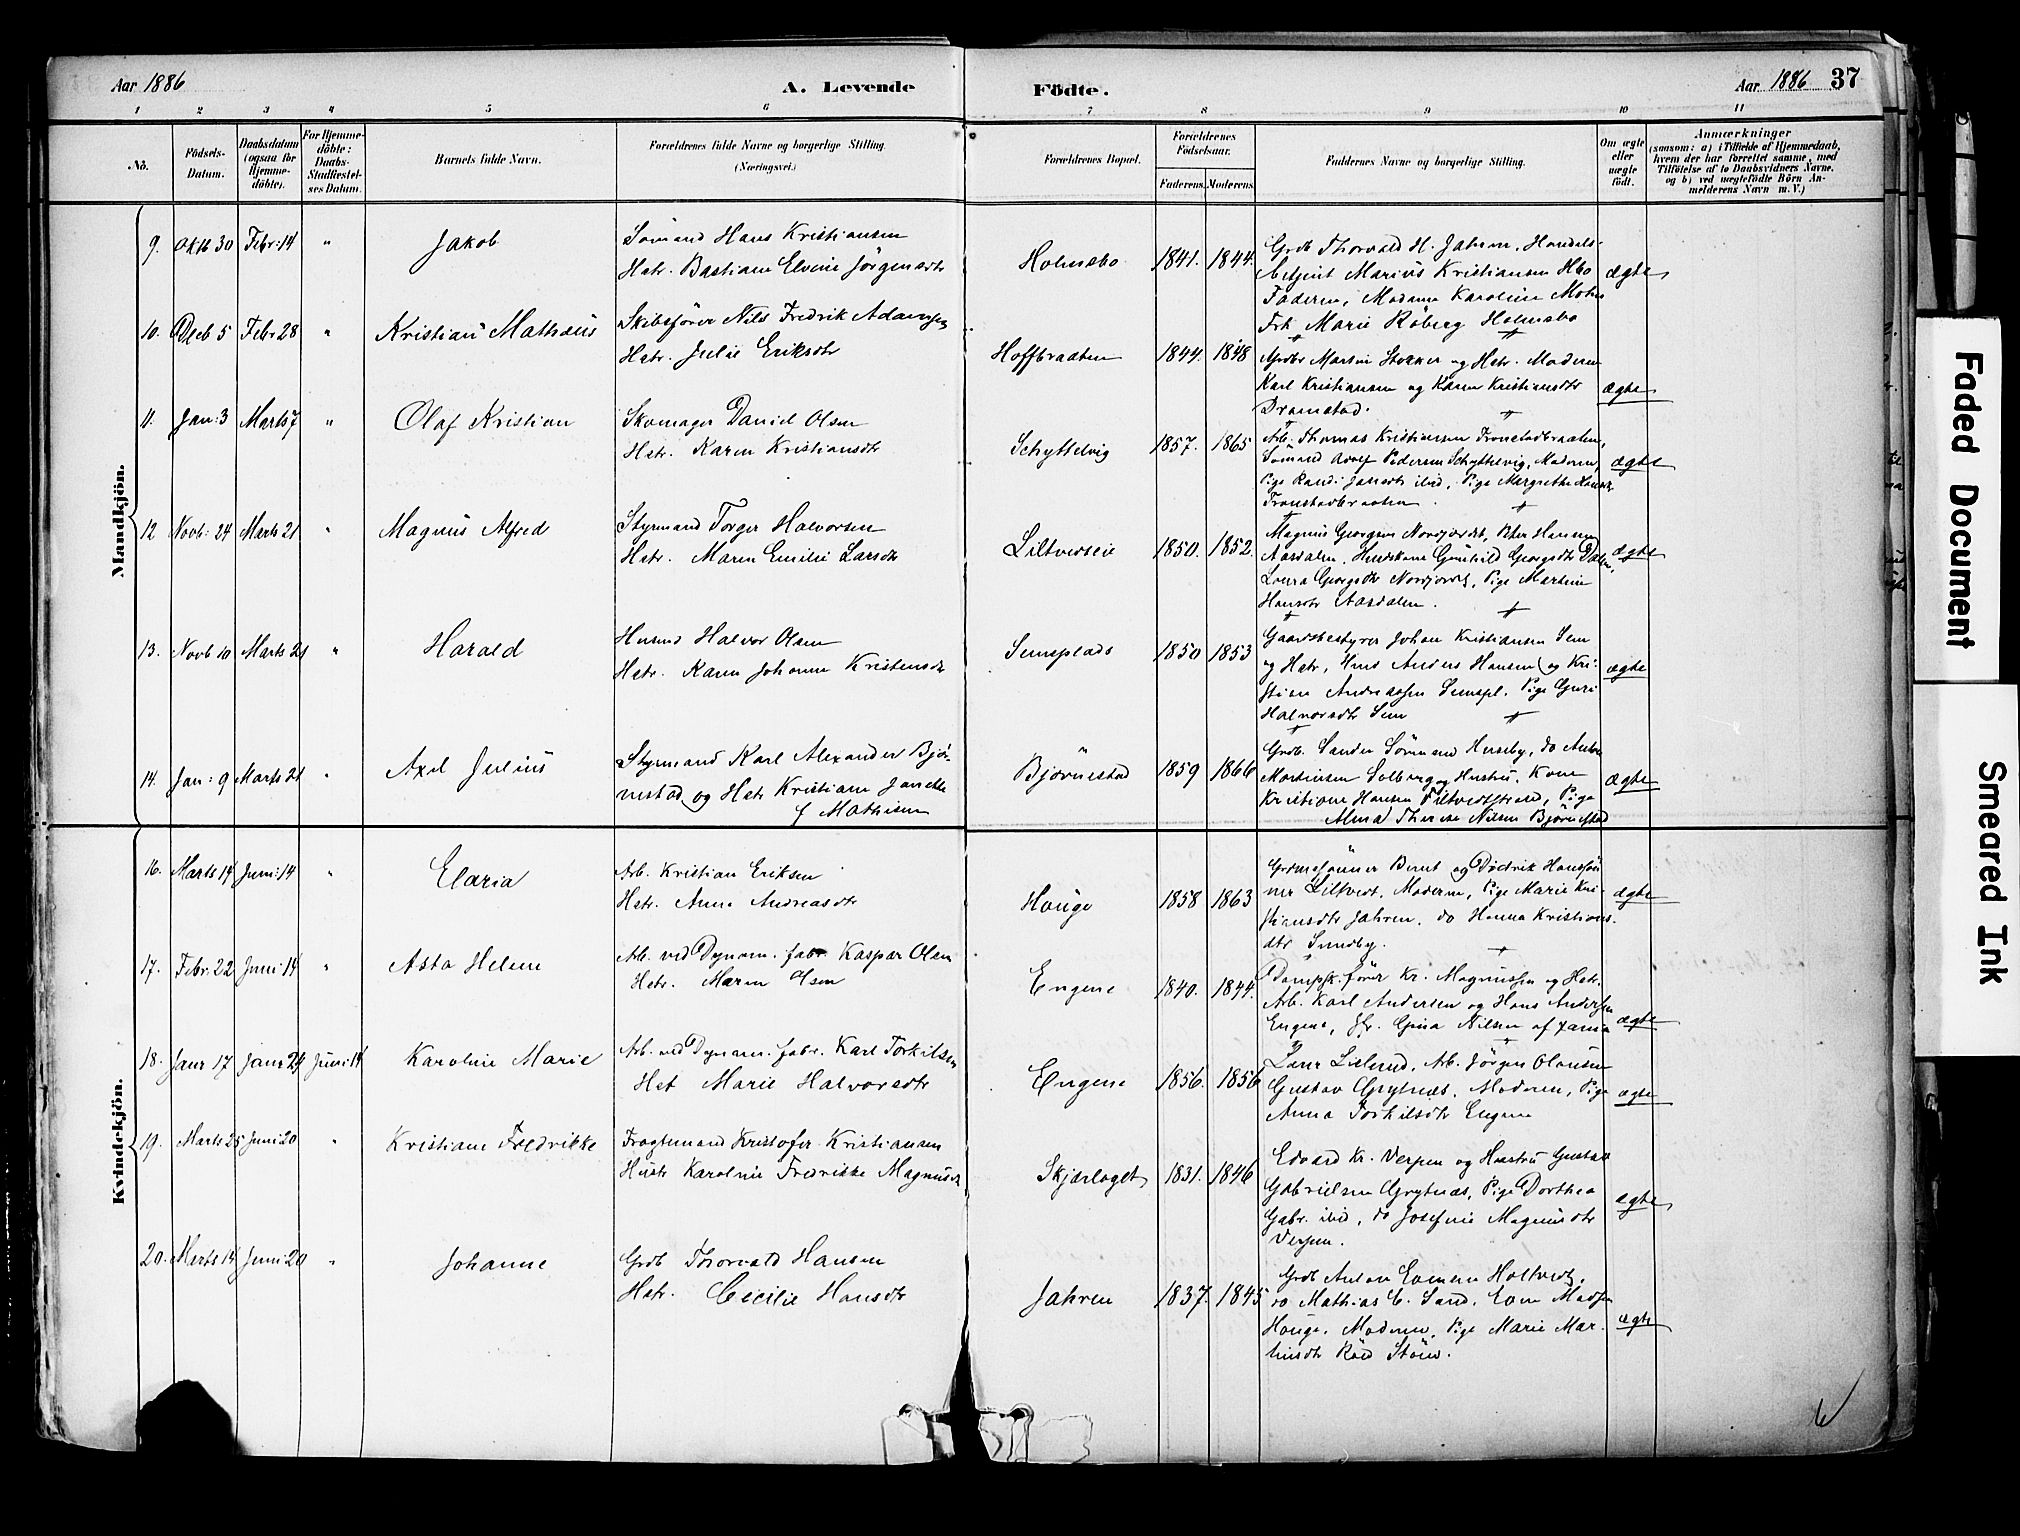 Aar 1886 A. Levende Födte. Aar 1886 37
1 2 3 4 5 6 7 8 9 10 11
No. Födsels-Datum. Daabsdatum (ogsaa for Hjemme-döbte). For Hjemme-döbte: Daabs-Stadfæstel-ses Datum. Barnets fulde Navn. Forældrenes fulde Navne og borgerlige Stilling. (Næringsvei.) Forældrenes Bopæl. Forældrenes Födselsaar. Faderens. Moderens. Faddernes Navne og borgerlige Stilling. Om ægte eller uægte födt. Anmærkninger (saasom: a) i Tilfælde af Hjemmedaab, hvem der har forrettet samme, med Tilföielse af to Daabsvidners Navne, og b) ved uægtefödte Börn An-melderens Navn m. V.)
Mandkjön.
9. Oktb 30 Febr: 14 " Jakob
Sömand Hans Kristiansen
Hstr. Bastiane Elvine Jörgensdtr
Holmsbo 1841. 1844.
Grdb Thorvald H. Jahren, Handels-
betjent Marius Kristiansen Hbo
Faderen, Madame Karoline Mohn
Frk Marie Röberg Holmsbo
ægte
10. Dceb 5 Febr 28 " Kristian Mathæus
Skibsförer Nils Fredrik Adamsen
Hstr. Julie Eriksdtr
Hoffbraaten 1844. 1848
Grdbr Martin Stokker og Hstr. Moderen
Karl Kristiansen og Karen Kristiansdtr
Dramstad.
ægte
11. Jan: 3 Marts 7 " Olaf Kristian
Skomager Daniel Olsen
Hstr. Karen Kristiansdtr
Schyttelvig 1857. 1865
Arb. Thomas Kristiansen Tronstadbraaten,
Sömand Adolf Pedersen Schyttelvig, Moderen,
Pige Randi Jansdtr ibid, Pige Margrethe Hansdtr
Tronstadbraaten
ægte
12 Novb: 24 Marts 21 " Magnus Alfred
Styrmand Torger Halvorsen
Hstr. Maren Emilie Larsdtr
Liltvedseie 1850. 1852.
Magnus Georgsen Nordjordet, Peter Hansen
Aasdalen, Huuskone Gunhild Georgsdtr Dalen,
Laura Georgsdtr Nordjordet, Pige Martine
Hansdtr Aasdalen.
ægte
13. Novb 10 Marts 21 " Harald
Husmd Halvor Olsen
Hstr. Karen Johanne Kristensdtr
Semsplads 1850 1853
Gaardsbestyrer Johan Kristiansen Sem
og Hstr, Hmd Anders Hansen og Kri-
stian Andreassen Semspl. Pige Guri
Halvorsdtr Sem
ægte
14. Jan: 9 Marts 21 " Axel Julius
Styrmand Karl Alexander Bjö-
nestad og Hstr Kristiane Janette
f Mathisen
Björnestad 1859 1866
Grdb. Sander Sörmand Huseby, do Anton
Mortinsen Solberg og Hustru, Kone
Kristiane Hansen Filtvedtstrand, Pige
Alma Therese Nilsen Björnestad
ægte
Kvindekjön.
16. Marts 14 Juni: 14 " Elaria
Arb. Kristian Eriksen
Hstr. Anne Andreasdtr
Hauge 1858 1863
Grdmandsönner Bernt og Didrik Hanssön
ner Liltvedt, Moderen, Pige Marie Kri-
stiansdtr Jahren, do Hanna Kristians-
dtr Sundby.
ægte
17. Febr: 22 Juni: 14 " Asta Helene
Arb. ved Dynam. fabr Kaspar Olsen
Hstr. Maren Olsen
Engene 1840. 1844.
Dampsk.förer Kr. Magnussen og Hstr.
Arb. Karl Andersen og Hans Andersen
Engene, Fr. Gina Nilsen af Xania
ægte
18. Janr 17 Janr 24 Juni: 14 Karoline Marie
Arb. ved Dynam. fabr. Karl Torkilsen
Hst Marie Halvorsdtr
Engene 1856. 1856
Lars Lislerud, Arb. Jörgen Olausen
Gustav Grytnæs, Moderen, Pige
Anna Torkilsdtr Engene
ægte
19. Marts 25 Juni 20 " Kristiane Fredrikke
Fragtemand Kristofer Kristiansen
Hustr Karoline Fredrikke Magnusdtr
Skjærlaget 1831. 1846
Edvard Kr. Verpen og Hustru Gustav
Gabrielsen Grytnæs, Pige Dorthea
Gabr. ibid, do Josefine Magnusdtr
Verpen.
ægte
20. Marts 14 Juni 20 " Johanne
Grdb Thorvald Hansen
Hstr. Cecilie Hansdtr
Jahren 1837. 1845
Grdb Anton Evensen Holtvedt,
do Mathias C. Sand, Even Madsen
Hauge, Moderen, Pige Marie Mar-
tinsdtr Röed Stöa.
ægte
Faded Document
Smeared Ink